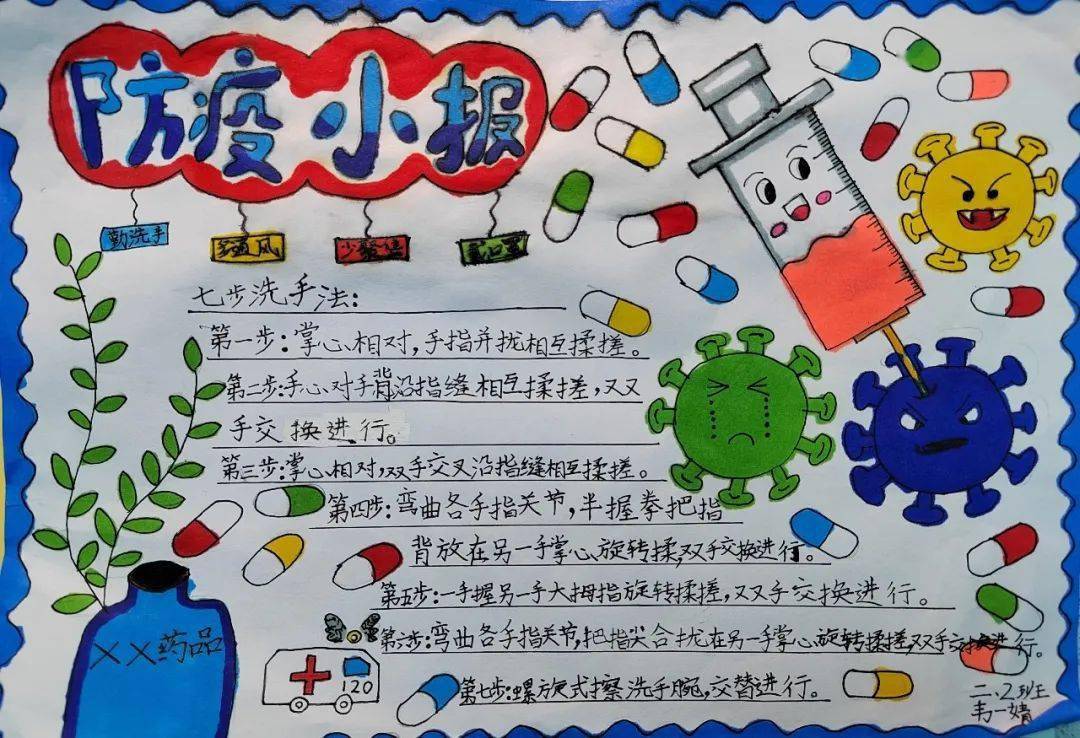 防疫小报
勤洗手
多通风
少聚集
戴口罩
七步洗手法:
第一步:掌心相对,手指并拢相互揉搓。
第二步:手心对手背沿指缝相互揉搓,双又
手交换进行。
第三步:掌心相对,双手交叉沿指缝相互揉搓。
第四步:弯曲各手指关节,半握拳把指
背放在另一手掌心旋转揉,双手交换进行。
第五步:一手握另一手大拇指旋转揉搓,双手交换进行。
第六步:弯曲各手指关节,把指尖合拢在另一手掌心旋转揉搓,双手交换进行。
第七步:螺旋式擦洗手腕,交替进行。
××药品
120
二、2班
韦一婧